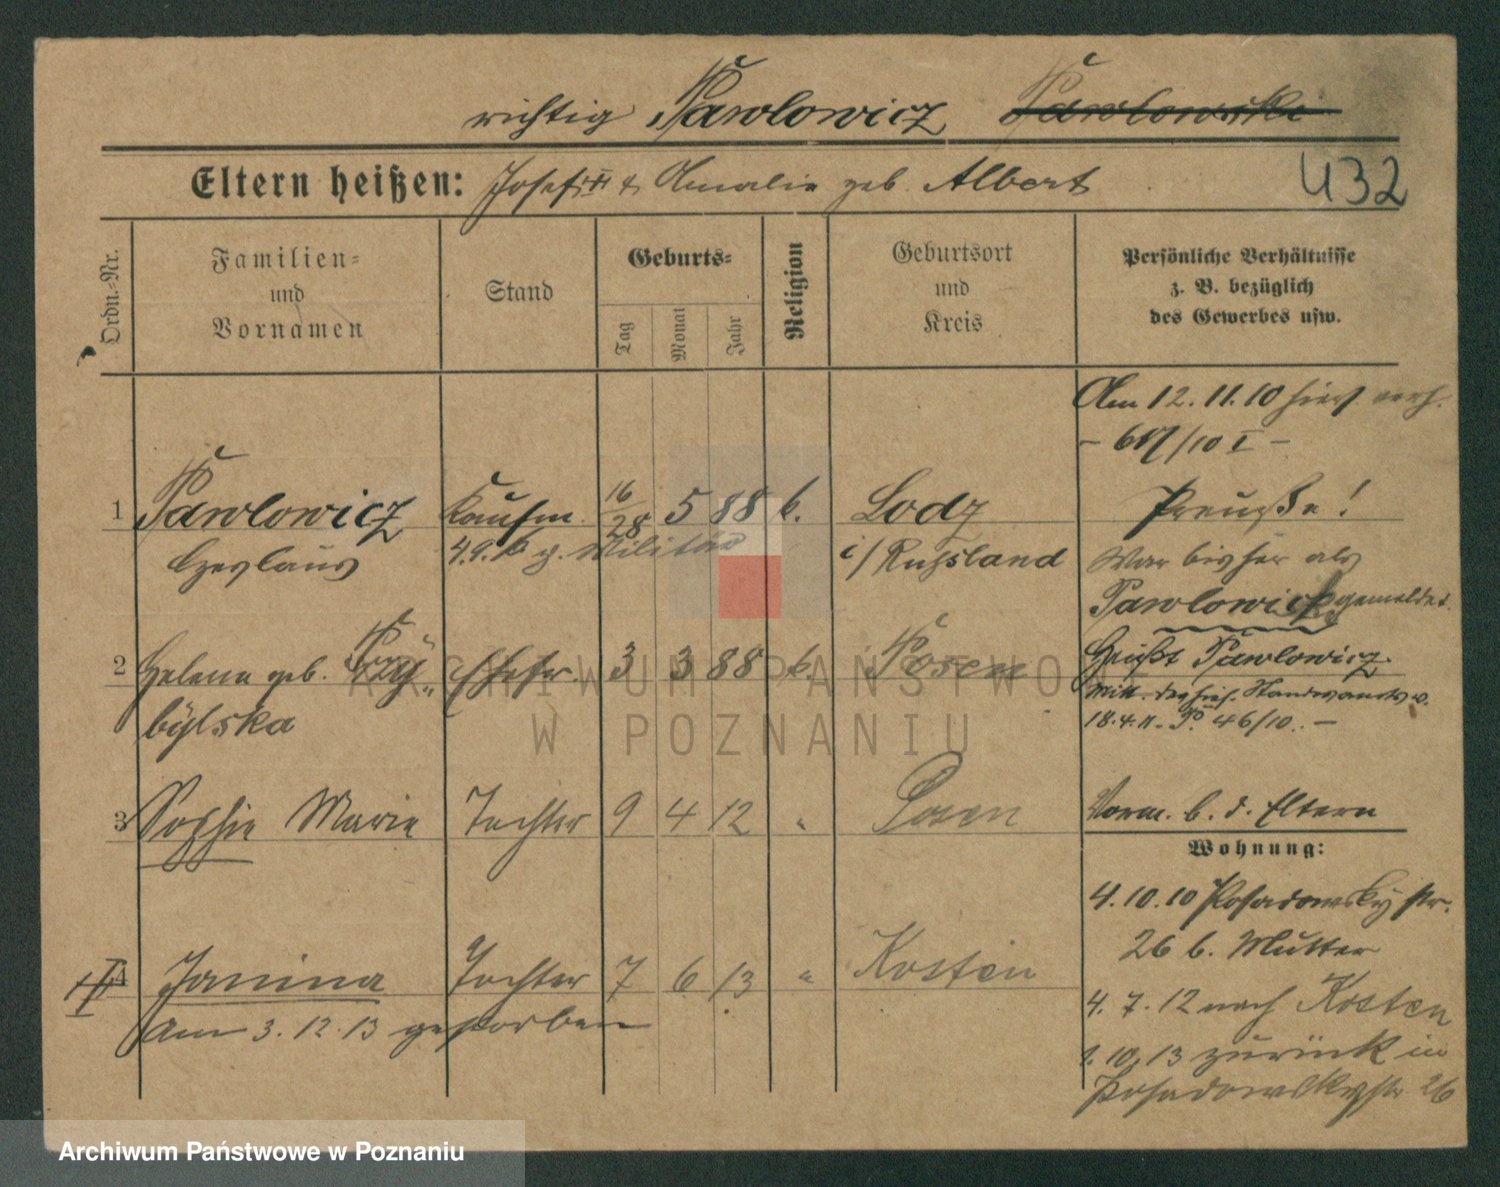 richtig Pawlowicz Pawlowski
Eltern heißen: Josef & Amalie geb. Albert
432
Ordn.-Nr.
Familien-
und
Vornamen
Stand
Geburts-
Tag
Monat
Jahr
Religion
Geburtsort
und
Kreis
Persönliche Verhältnisse
z. B. bezüglich
des Gewerbes usw.
Am 12.11.10 hier verh.
/10 I -
1 Pawlowicz Kaufm. 16/28 5 88 k. Lodz Preuße!
Czeslaus z. Militär i/Russland War bisher als
Pawlowicz gemeldet.
2 Helena geb. Przy- Ehefr. 3 3 88 k. Posen Heißt Pawlowicz
bylska
Mitt. des hies. Standesamts v.
18.4.11. P. 46/10. -
3 Sophie Marie Tochter 9 4 12 " Posen Vorm. b. d. Eltern
Wohnung:
4.10.10 Posadowsky str.
26 b. Mutter
Janina Tochter 7 6 13 " Kosten
am 3.12.13 gestorben
4.7.12 nach Kosten
1.10.13 zurück in
Posadowskystr 26
ARCHIWUM PAŃSTWOWE
W POZNANIU
Archiwum Państwowe w Poznaniu